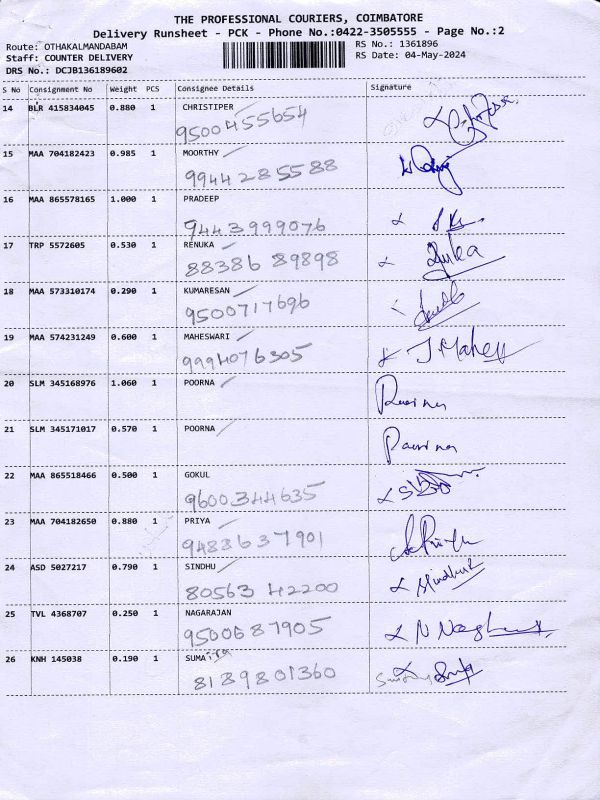 THE PROFESSIONAL COURIERS, COIMBATORE
Delivery Runsheet - PCK - Phone No.:0422-3505555 - Page No.:2
Route: OTHAKALMANDABAM RS No.: 1361896
Staff: COUNTER DELIVERY RS Date: 04-May-2024
DRS No.: DCJB136189602
S No Consignment No Weight PCS Consignee Details Signature
14 BLR 415834045 0.880 1 CHRISTIPER
9500455654
15 MAA 704182423 0.985 1 MOORTHY
9944285588
16 MAA 865578165 1.000 1 PRADEEP
9443999076
17 TRP 5572605 0.530 1 RENUKA
88386 89898
18 MAA 573310174 0.290 1 KUMARESAN
9500717696
19 MAA 574231249 0.600 1 MAHESWARI
9994076305 J Mahes
20 SLM 345168976 1.060 1 POORNA
21 SLM 345171017 0.570 1 POORNA
22 MAA 865518466 0.500 1 GOKUL
9600344635
23 MAA 704182650 0.880 1 PRIYA
9488637901
24 ASD 5027217 0.790 1 SINDHU
80563 42200
25 TVL 4368707 0.250 1 NAGARAJAN
9500687905
26 KNH 145038 0.190 1 SUMA
8189801360